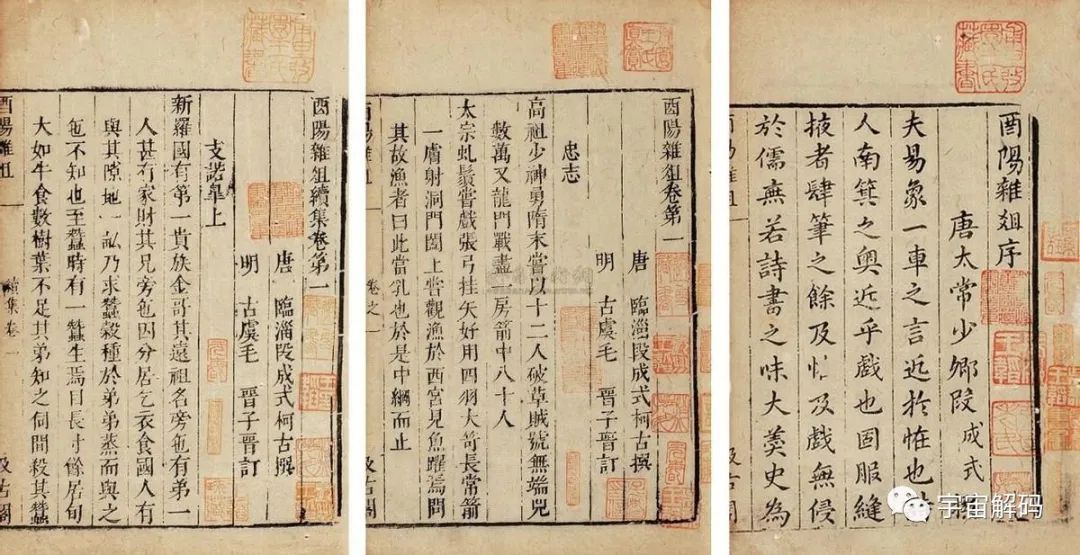 酉陽雜俎序
唐太常少卿段成式
夫易象一車之言近於怪也
人南箕之奧近乎戲也固服縫
掖者肆筆之餘及怪及戲無侵
於儒無若詩書之味大羹史為
酉陽雜俎卷第一
唐 臨淄段成式柯古撰
明 古虞毛 晉子晉訂
忠志
高祖少神勇隋末嘗以十二人破草賊號無端兒
數萬又龍門戰盡一房箭中八十人
太宗虬鬚嘗戲張弓挂矢好用四羽大笴長常箭
一膚射洞門闔上嘗觀漁於西宮見魚躍焉問
其故漁者曰此當乳也於是中網而止
卷之一
酉陽雜俎續集卷第一
唐 臨淄段成式柯古撰
明 古虞毛 晉子晉訂
支諾皋上
新羅國有第一貴族金哥其遠祖名旁㐌有弟一
人甚有家財其兄旁㐌因分居乞衣食國人有
與其隙地一畝乃求蠶穀種於弟弟蒸而與之
㐌不知也至蠶時有一蠶生焉日長寸餘居旬
大如牛食數樹葉不足其弟知之伺間殺其蠶
續集卷一
宇宙解码